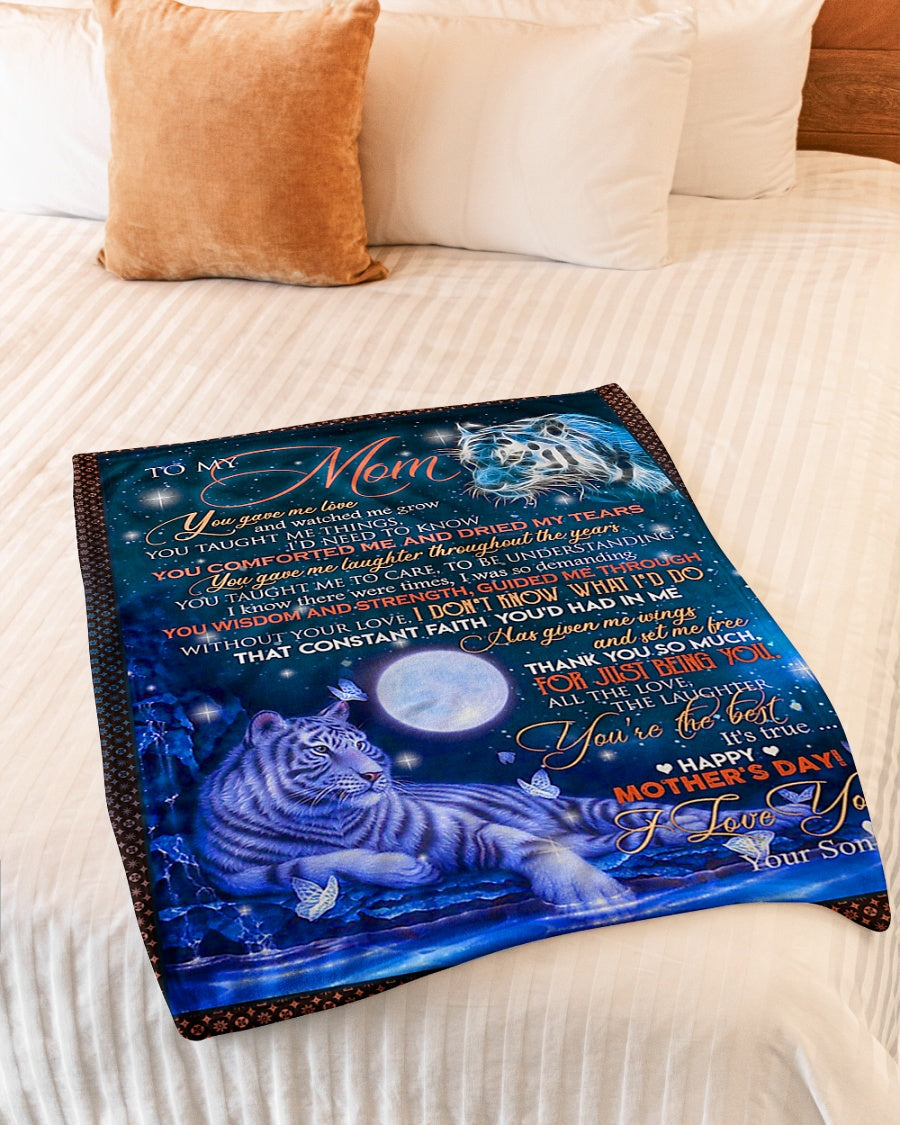 TO MY Mom
You gave me love
and watched me grow
YOU TAUGHT ME THINGS,
I'D NEED TO KNOW
YOU COMFORTED ME AND DRIED MY TEARS
You gave me laughter throughout the years
YOU TAUGHT ME TO CARE, TO BE UNDERSTANDING
I know there were times, I was so demanding
YOU WISDOM AND STRENGTH, GUIDED ME THROUGH
WITHOUT YOUR LOVE, I DON'T KNOW WHAT I'D DO
THAT CONSTANT FAITH YOU'D HAD IN ME
Has given me wings
and set me free
THANK YOU SO MUCH,
FOR JUST BEING YOU.
ALL THE LOVE,
THE LAUGHTER
You're the best
It's true ...
HAPPY
MOTHER'S DAY!
I Love Yo
Your Son